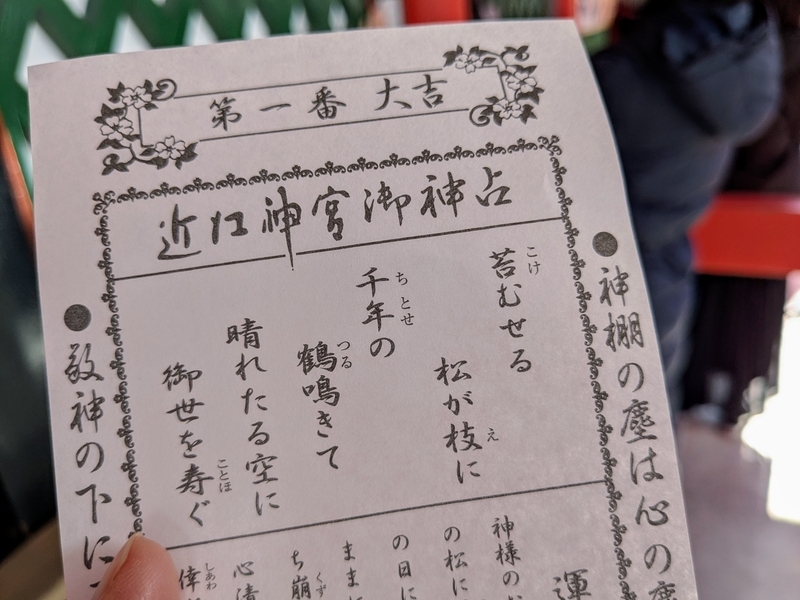 第一番 大吉
近江神宮御神占
神棚の塵は心の塵
苔むせる
こけ
松が枝に
え
千年の
ちとせ
鶴鳴きて
つる
晴れたる空に
御世を寿ぐ
ことほ
敬神の下に
運
神様の
の松に
の日に
ままに
ち崩
くず
心清
倖
しあわ